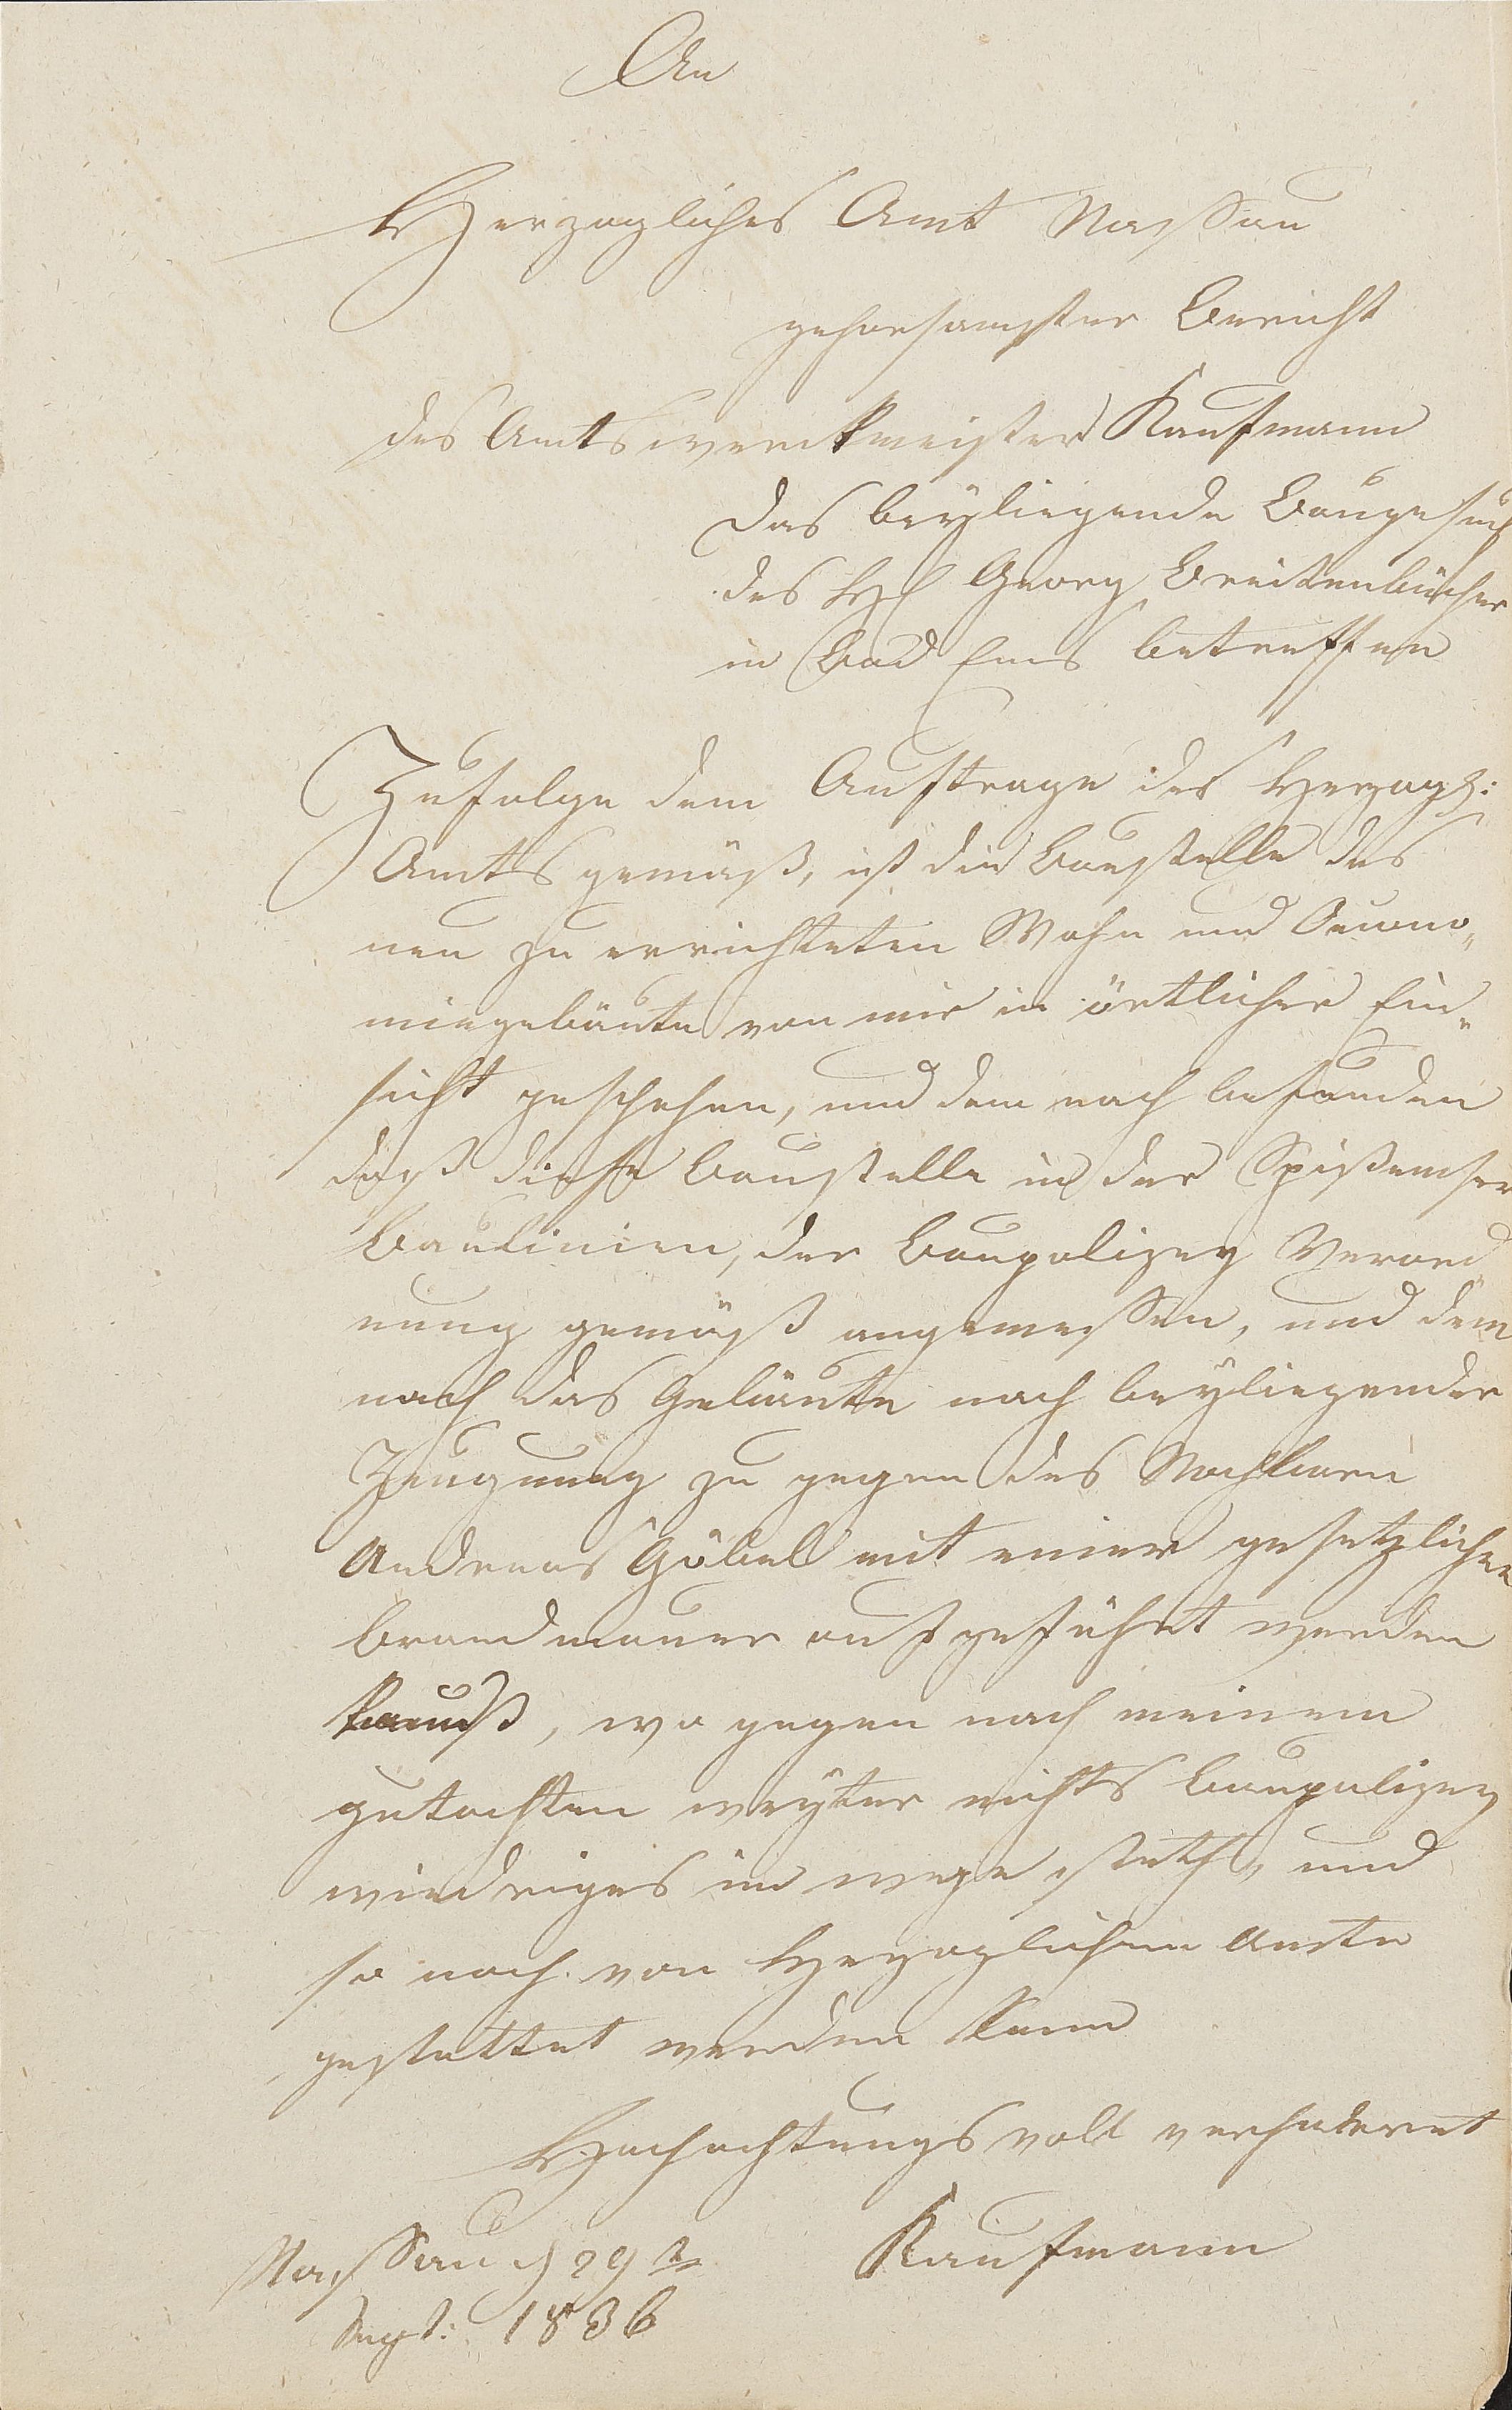 An
Herzogliches Amt Nassau
gehorsamster Bericht
des Amtswerckmeister Kaufmann
Das beyliegende Baugesuch
des H Georg Breitenbücher
in Bad Ems betreffen
Zufolge dem Auftrage des Herzogl:
Amts gemäß, ist die Baustelle des
neu zu errichteten Wohn und Oecono„
miegebäute von mir in örtlicher Ein„
sicht geschehen, und dem nach befunden
daß diese Baustelle in der Spißemser
Baulinien, der Baupolizey Verord„
nung gemäß angemessen, und dem
nach das Gebäute nach beyliegender
Zeugnung zu gegen des Nachbaren
Andreas Göbel mit einer gesetzlichen
Brandmauer aufgeführt werden
muß, wo gegen nach meinem
gutachten weyter nichts baupolizey
wiedriges im wege steth, und
so nach von Herzoglichem Amte
gestattet werden kann
Hochachtungsvoll verharret
Kaufmann
Nassau d 29t
Sept: 1836